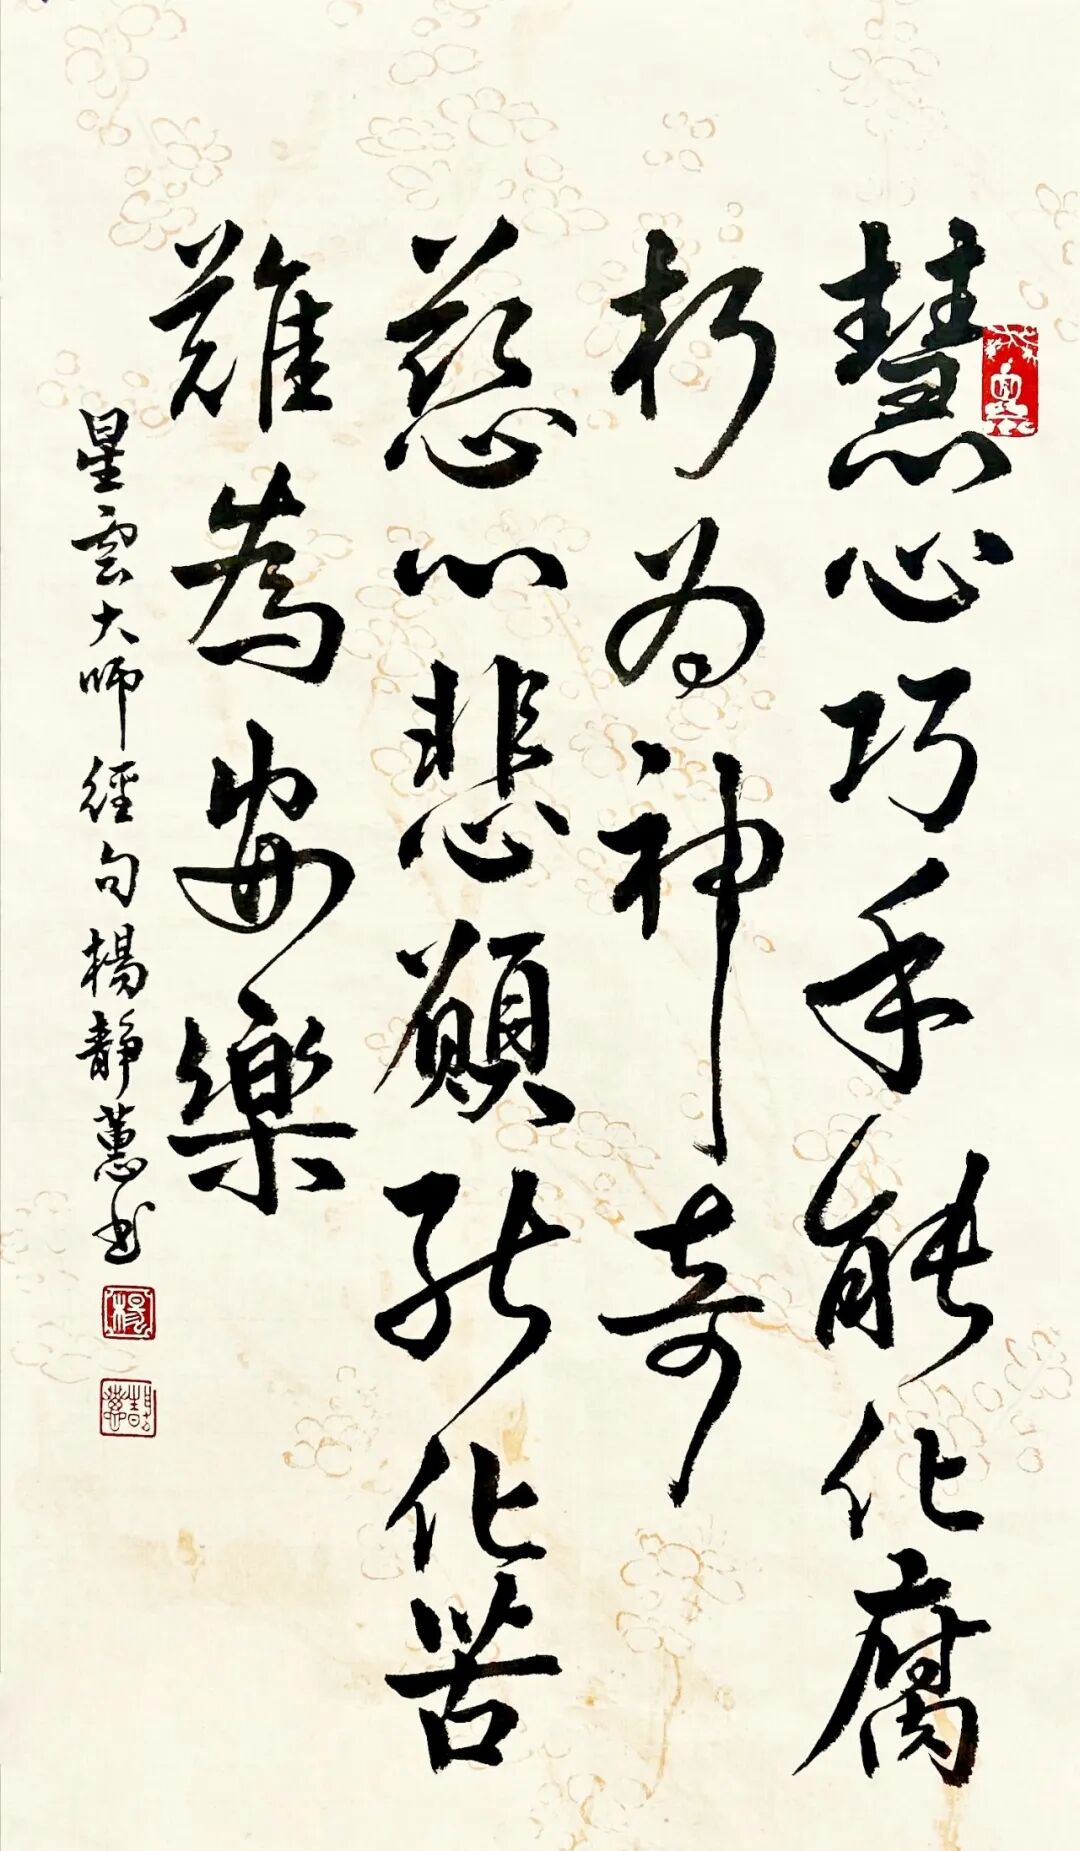 慧心巧手能化腐
朽为神奇
慈心悲願能化苦
難為安樂
星雲大師經句楊靜蕙书
楊
靜蕙